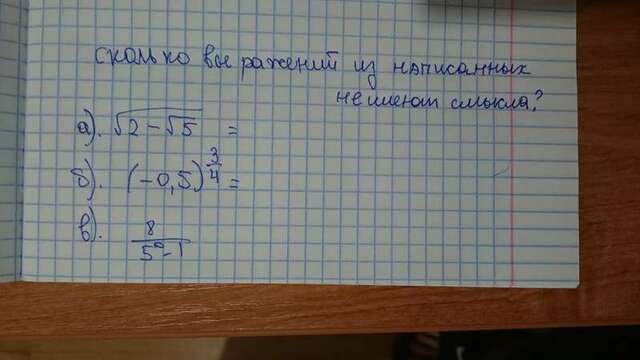 сколько выражений из написанных
не имеют смысла?
а). √(2-√5) =
б). (-0,5)^(3/4) =
в). 8/(5⁰-1)